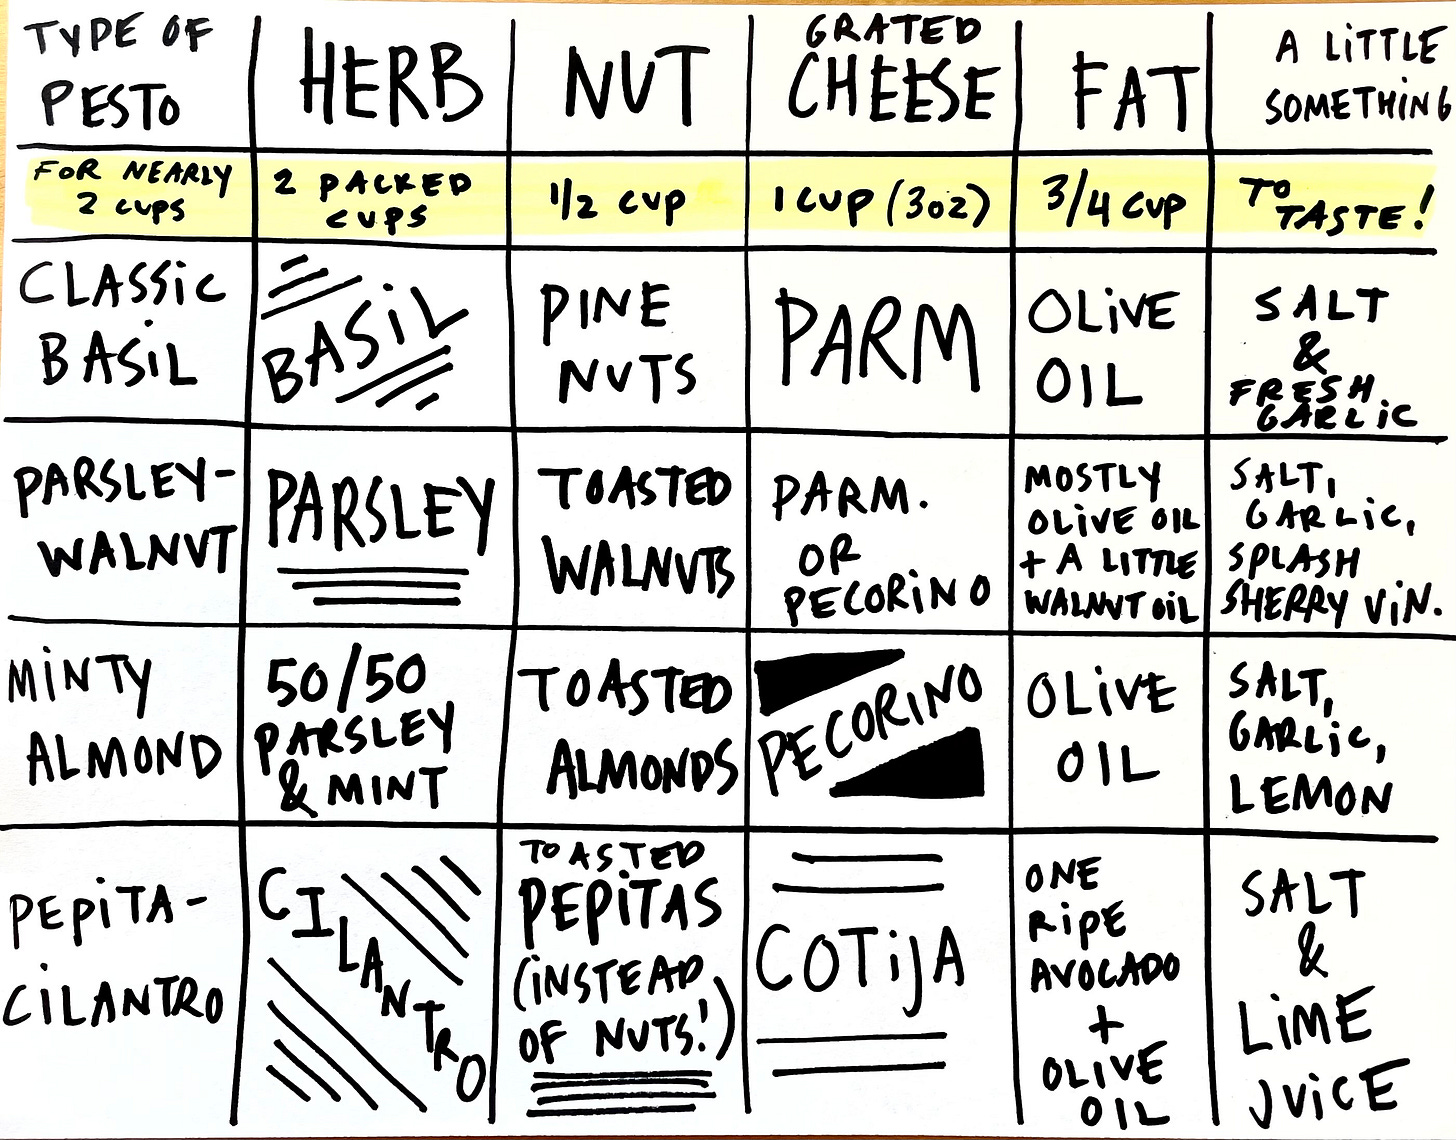 TYPE OF
PESTO
HERB
NUT
GRATED
CHEESE
FAT
A LiTTLE
SOMETHiNG
FOR NEARLY
2 CUPS
2 PACKED
CUPS
1/2 CUP
1 CUP (3oz)
3/4 CUP
TO
TASTE!
CLASSiC
BASiL
BASiL
PINE
NUTS
PARM
OLiVE
OIL
SALT
&
FRESH
GARLiC
PARSLEY-
WALNUT
PARSLEY
TOASTED
WALNUTS
PARM.
OR
PECORiNO
MOSTLY
OLiVE OIL
+ A LITTLE
WALNUT OiL
SALT,
GARLiC,
SPLASH
SHERRY ViN.
MiNTY
ALMOND
50/50
PARSLEY
& MINT
TOASTED
ALMONDS
PECORINO
OLiVE
OIL
SALT,
GARLiC,
LEMON
PEPiTA-
CiLANTRO
CILANTRO
TOASTED
PEPiTAS
(iNSTEAD
OF NUTS!)
COTiJA
ONE
RiPE
AVOCADO
+
OLIVE
OIL
SALT
&
LiME
JUiCE